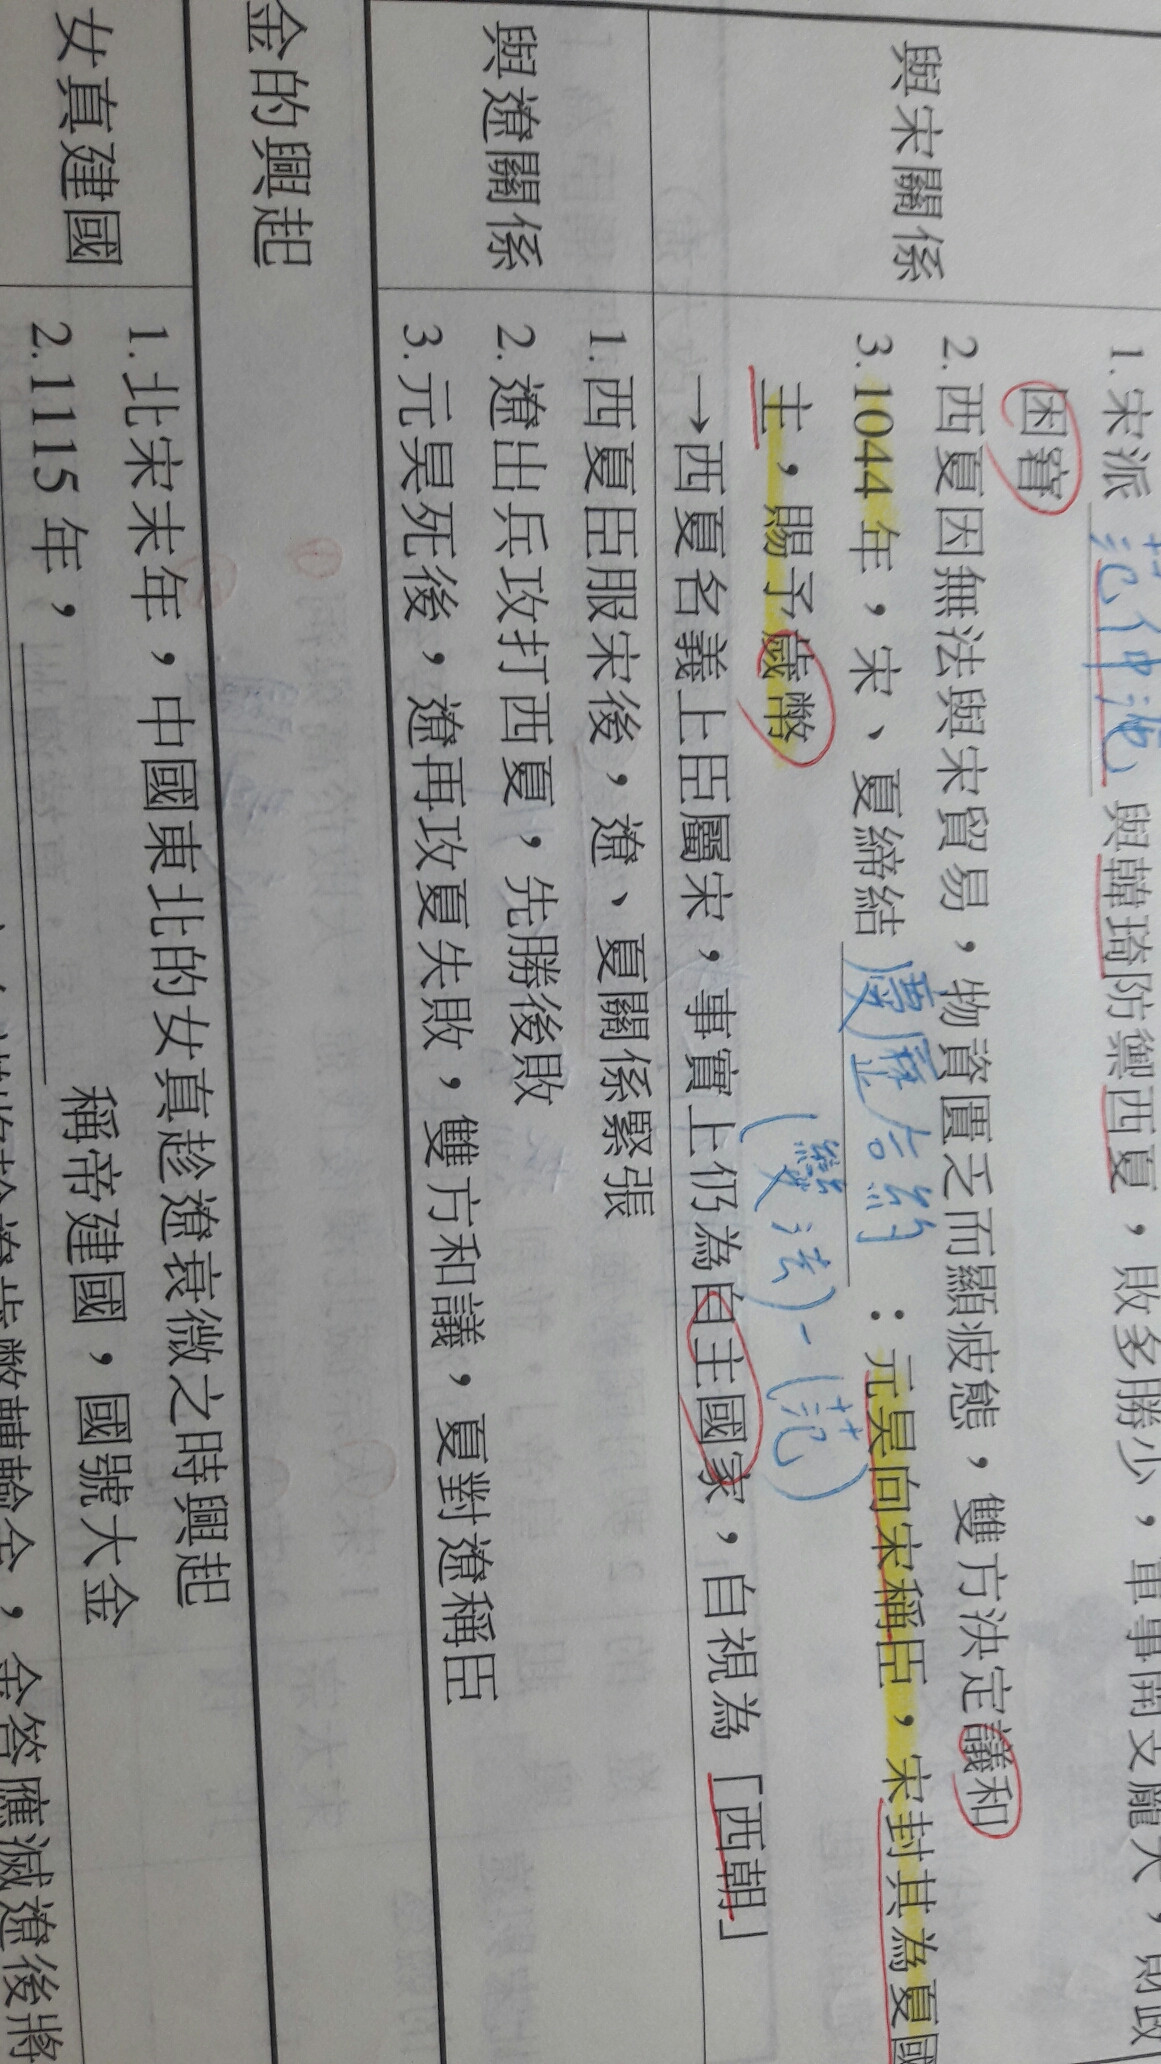 與宋關係
1.宋派 范仲淹 與韓琦防禦西夏，敗多勝少，軍事開支龐大，財政
困窘
2.西夏因無法與宋貿易，物資匱乏而顯疲態，雙方決定議和
3.1044年，宋、夏締結 慶歷合約：元昊向宋稱臣，宋封其為夏國
主，賜予歲幣
(變法)-(范)
→西夏名義上臣屬宋，事實上仍為自主國家，自視為「西朝」
與遼關係
1.西夏臣服宋後，遼、夏關係緊張
2.遼出兵攻打西夏，先勝後敗
3.元昊死後，遼再攻夏失敗，雙方和議，夏對遼稱臣
金的興起
女真建國
1.北宋末年，中國東北的女真趁遼衰微之時興起
2.1115年， 稱帝建國，國號大金
金答應滅遼後將